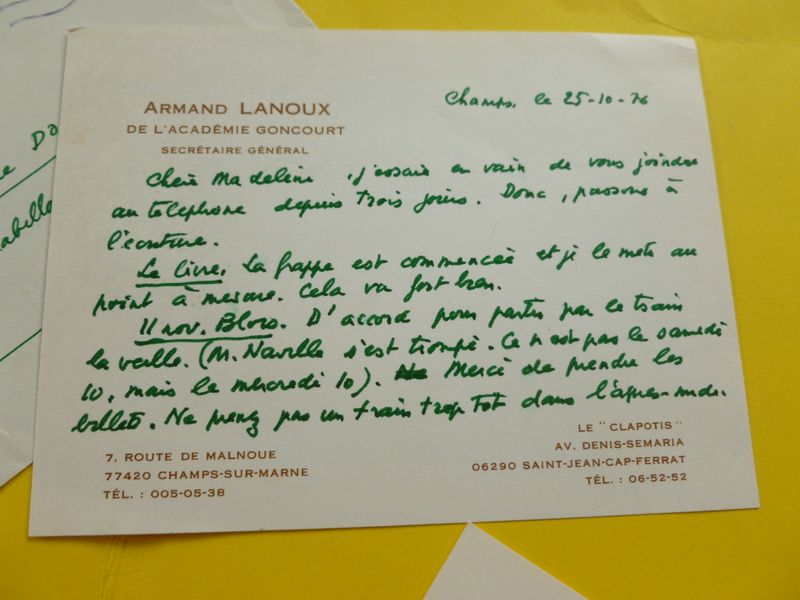 ARMAND LANOUX
DE L'ACADÉMIE GONCOURT
SECRÉTAIRE GÉNÉRAL
Champs, le 25-10-76
Chère Madeleine, j'essaie en vain de vous joindre
au telephone depuis trois jours. Donc, passons à
l'écriture.
Le livre. La frappe est commencée et je le mets au
point à mesure. Cela va fort bien.
11 nov. Blois. D'accord pour partir par le train
la veille. (M. Naville s'est trompé. Ce n'est pas le samedi
10, mais le mercredi 10). Merci de prendre les
billets. Ne prenez pas un train trop tot dans l'après-midi.
7, ROUTE DE MALNOUE
77420 CHAMPS-SUR-MARNE
TÉL. : 005-05-38
LE "CLAPOTIS"
AV. DENIS-SEMARIA
06290 SAINT-JEAN-CAP-FERRAT
TÉL. : 06-52-52